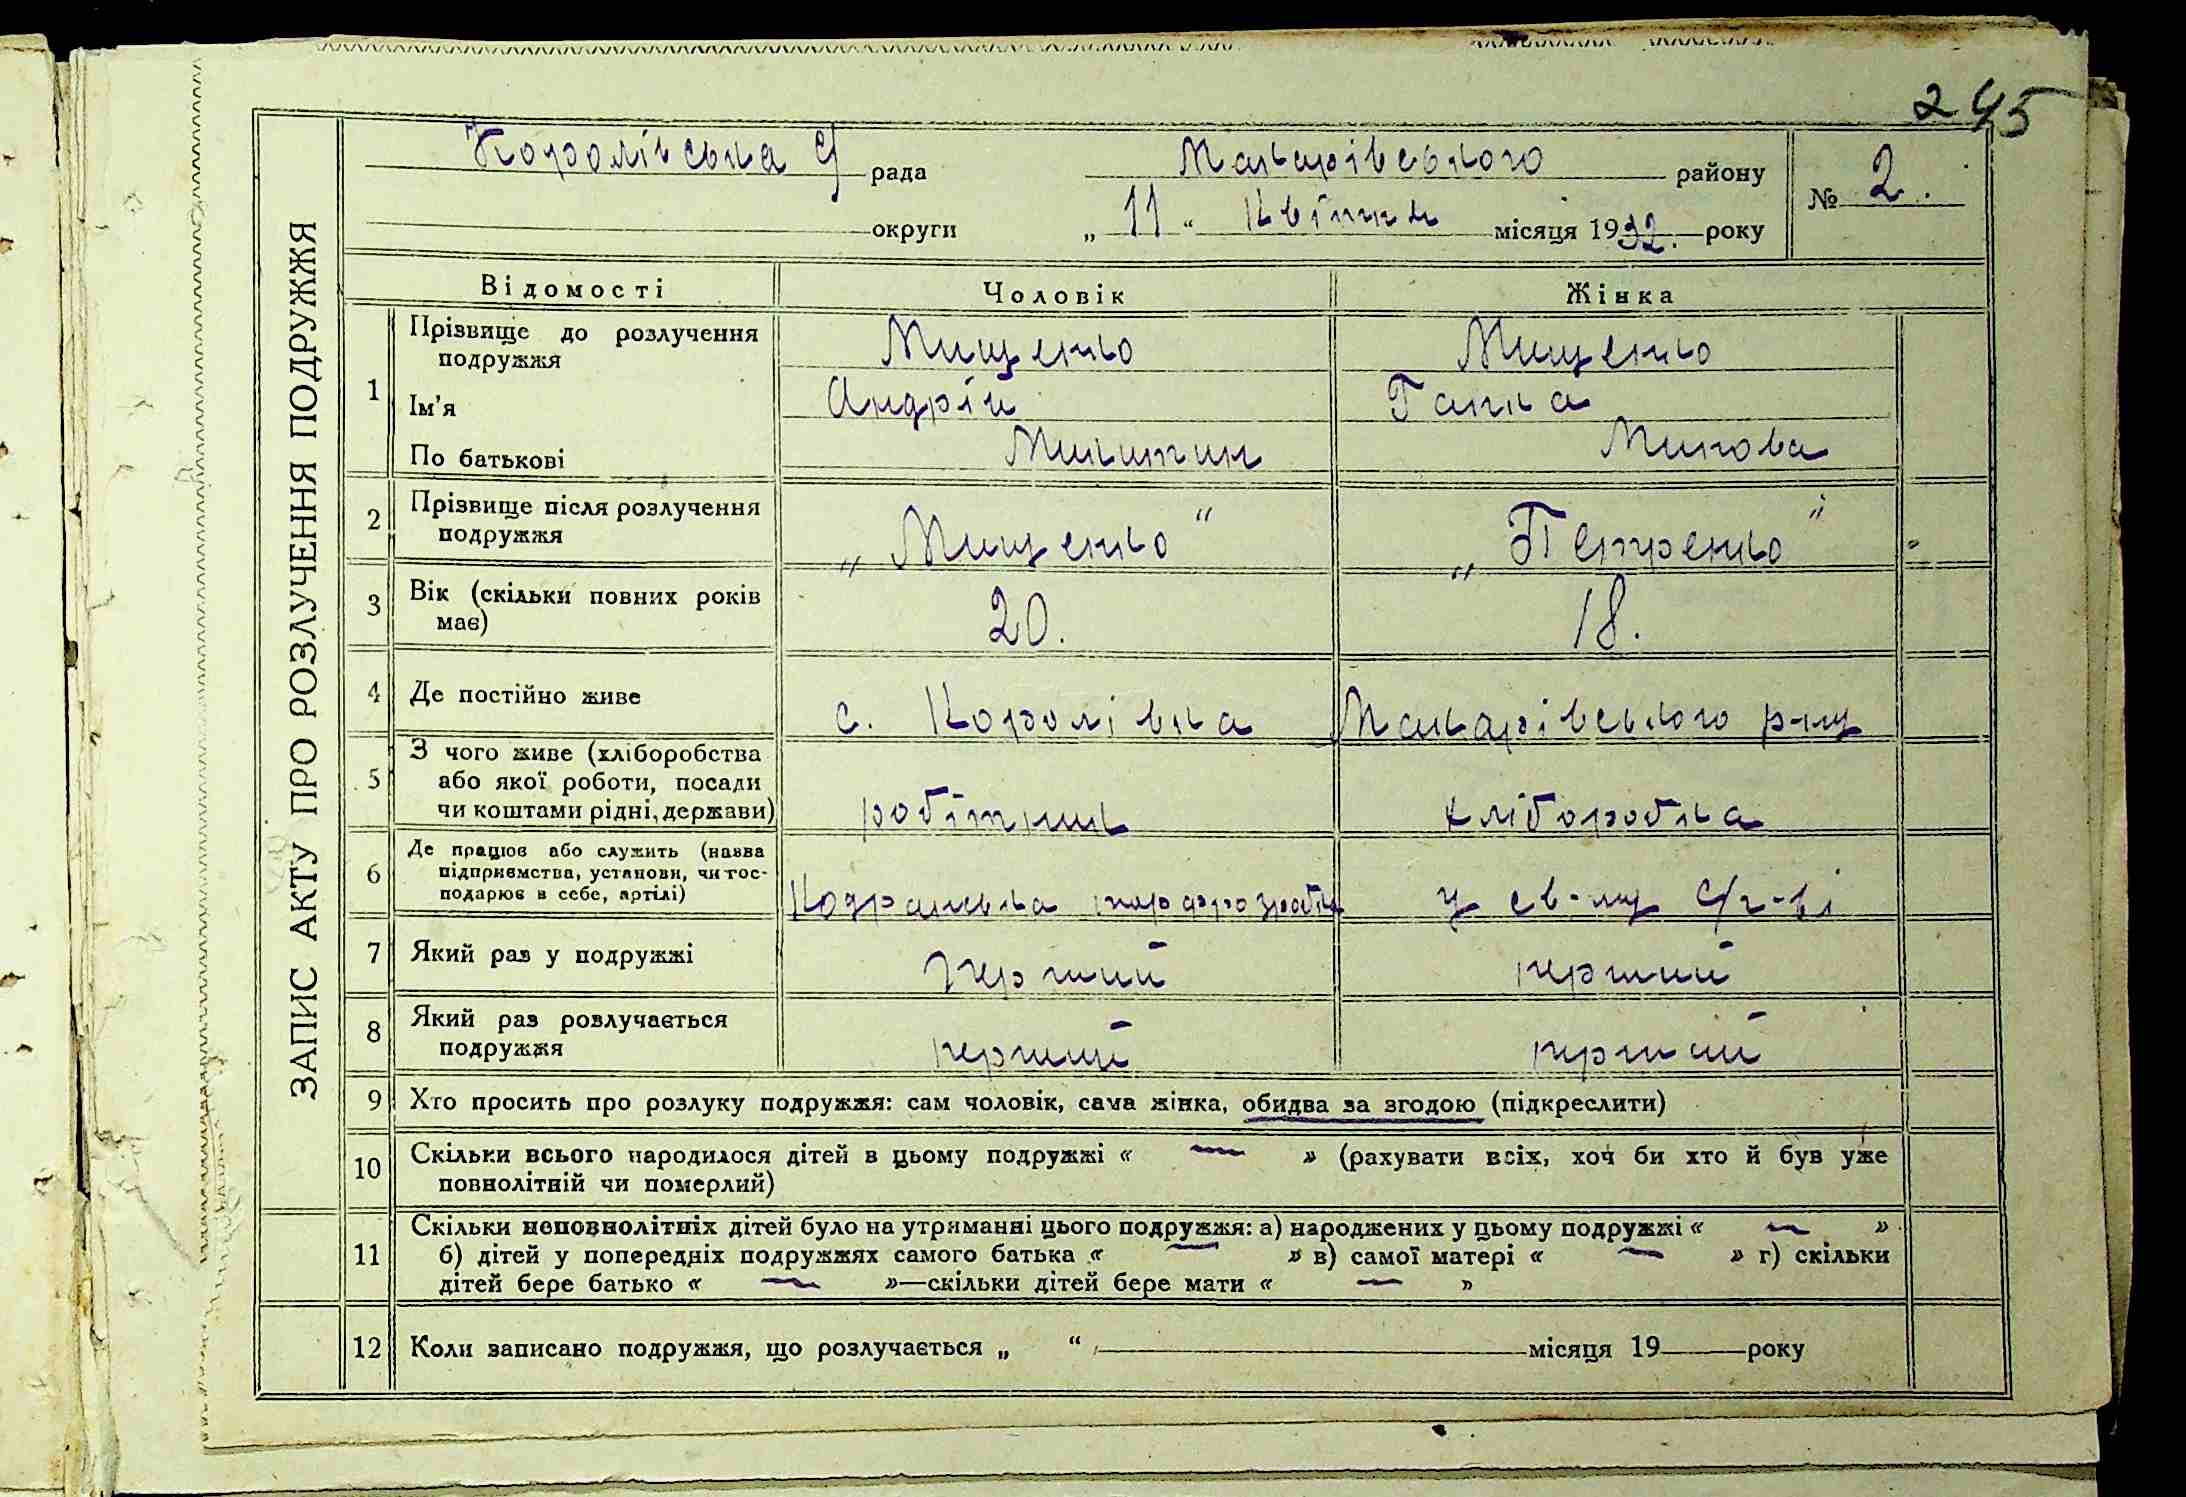 245
Королівська С/ рада Макарівського району № 2.
округи „ 11 “ Квітня місяця 1932. року
ЗАПИС АКТУ ПРО РОЗЛУЧЕННЯ ПОДРУЖЖЯ
Відомості Чоловік Жінка
1 Прізвище до розлучення подружжя Мищенко Мищенко
Ім’я Андрій Ганна
По батькові Микитин Минова
2 Прізвище після розлучення подружжя „Мищенко“ „Петренко“
3 Вік (скільки повних років має) 20. 18.
4 Де постійно живе с. Королівка Макарівського р-ну
5 З чого живе (хліборобства
або якої роботи, посади
чи коштами рідні, держави) робітник хліборобка
6 Де працює або служить (назва
підприємства, установи, чи гос-
подарює в себе, артілі) торфорозробка у св-му С/г-ві
7 Який раз у подружжі перший перший
8 Який раз розлучається
подружжя перший перший
9 Хто просить про розлуку подружжя: сам чоловік, сама жінка, обидва за згодою (підкреслити)
10 Скільки всього народилося дітей в цьому подружжі « — » (рахувати всіх, хоч би хто й був уже
повнолітній чи померлий)
11 Скільки неповнолітніх дітей було на утриманні цього подружжя: а) народжених у цьому подружжі « — »
б) дітей у попередніх подружжях самого батька « — » в) самої матері « — » г) скільки
дітей бере батько « — »—скільки дітей бере мати « — »
12 Коли записано подружжя, що розлучається „ “ місяця 19 року